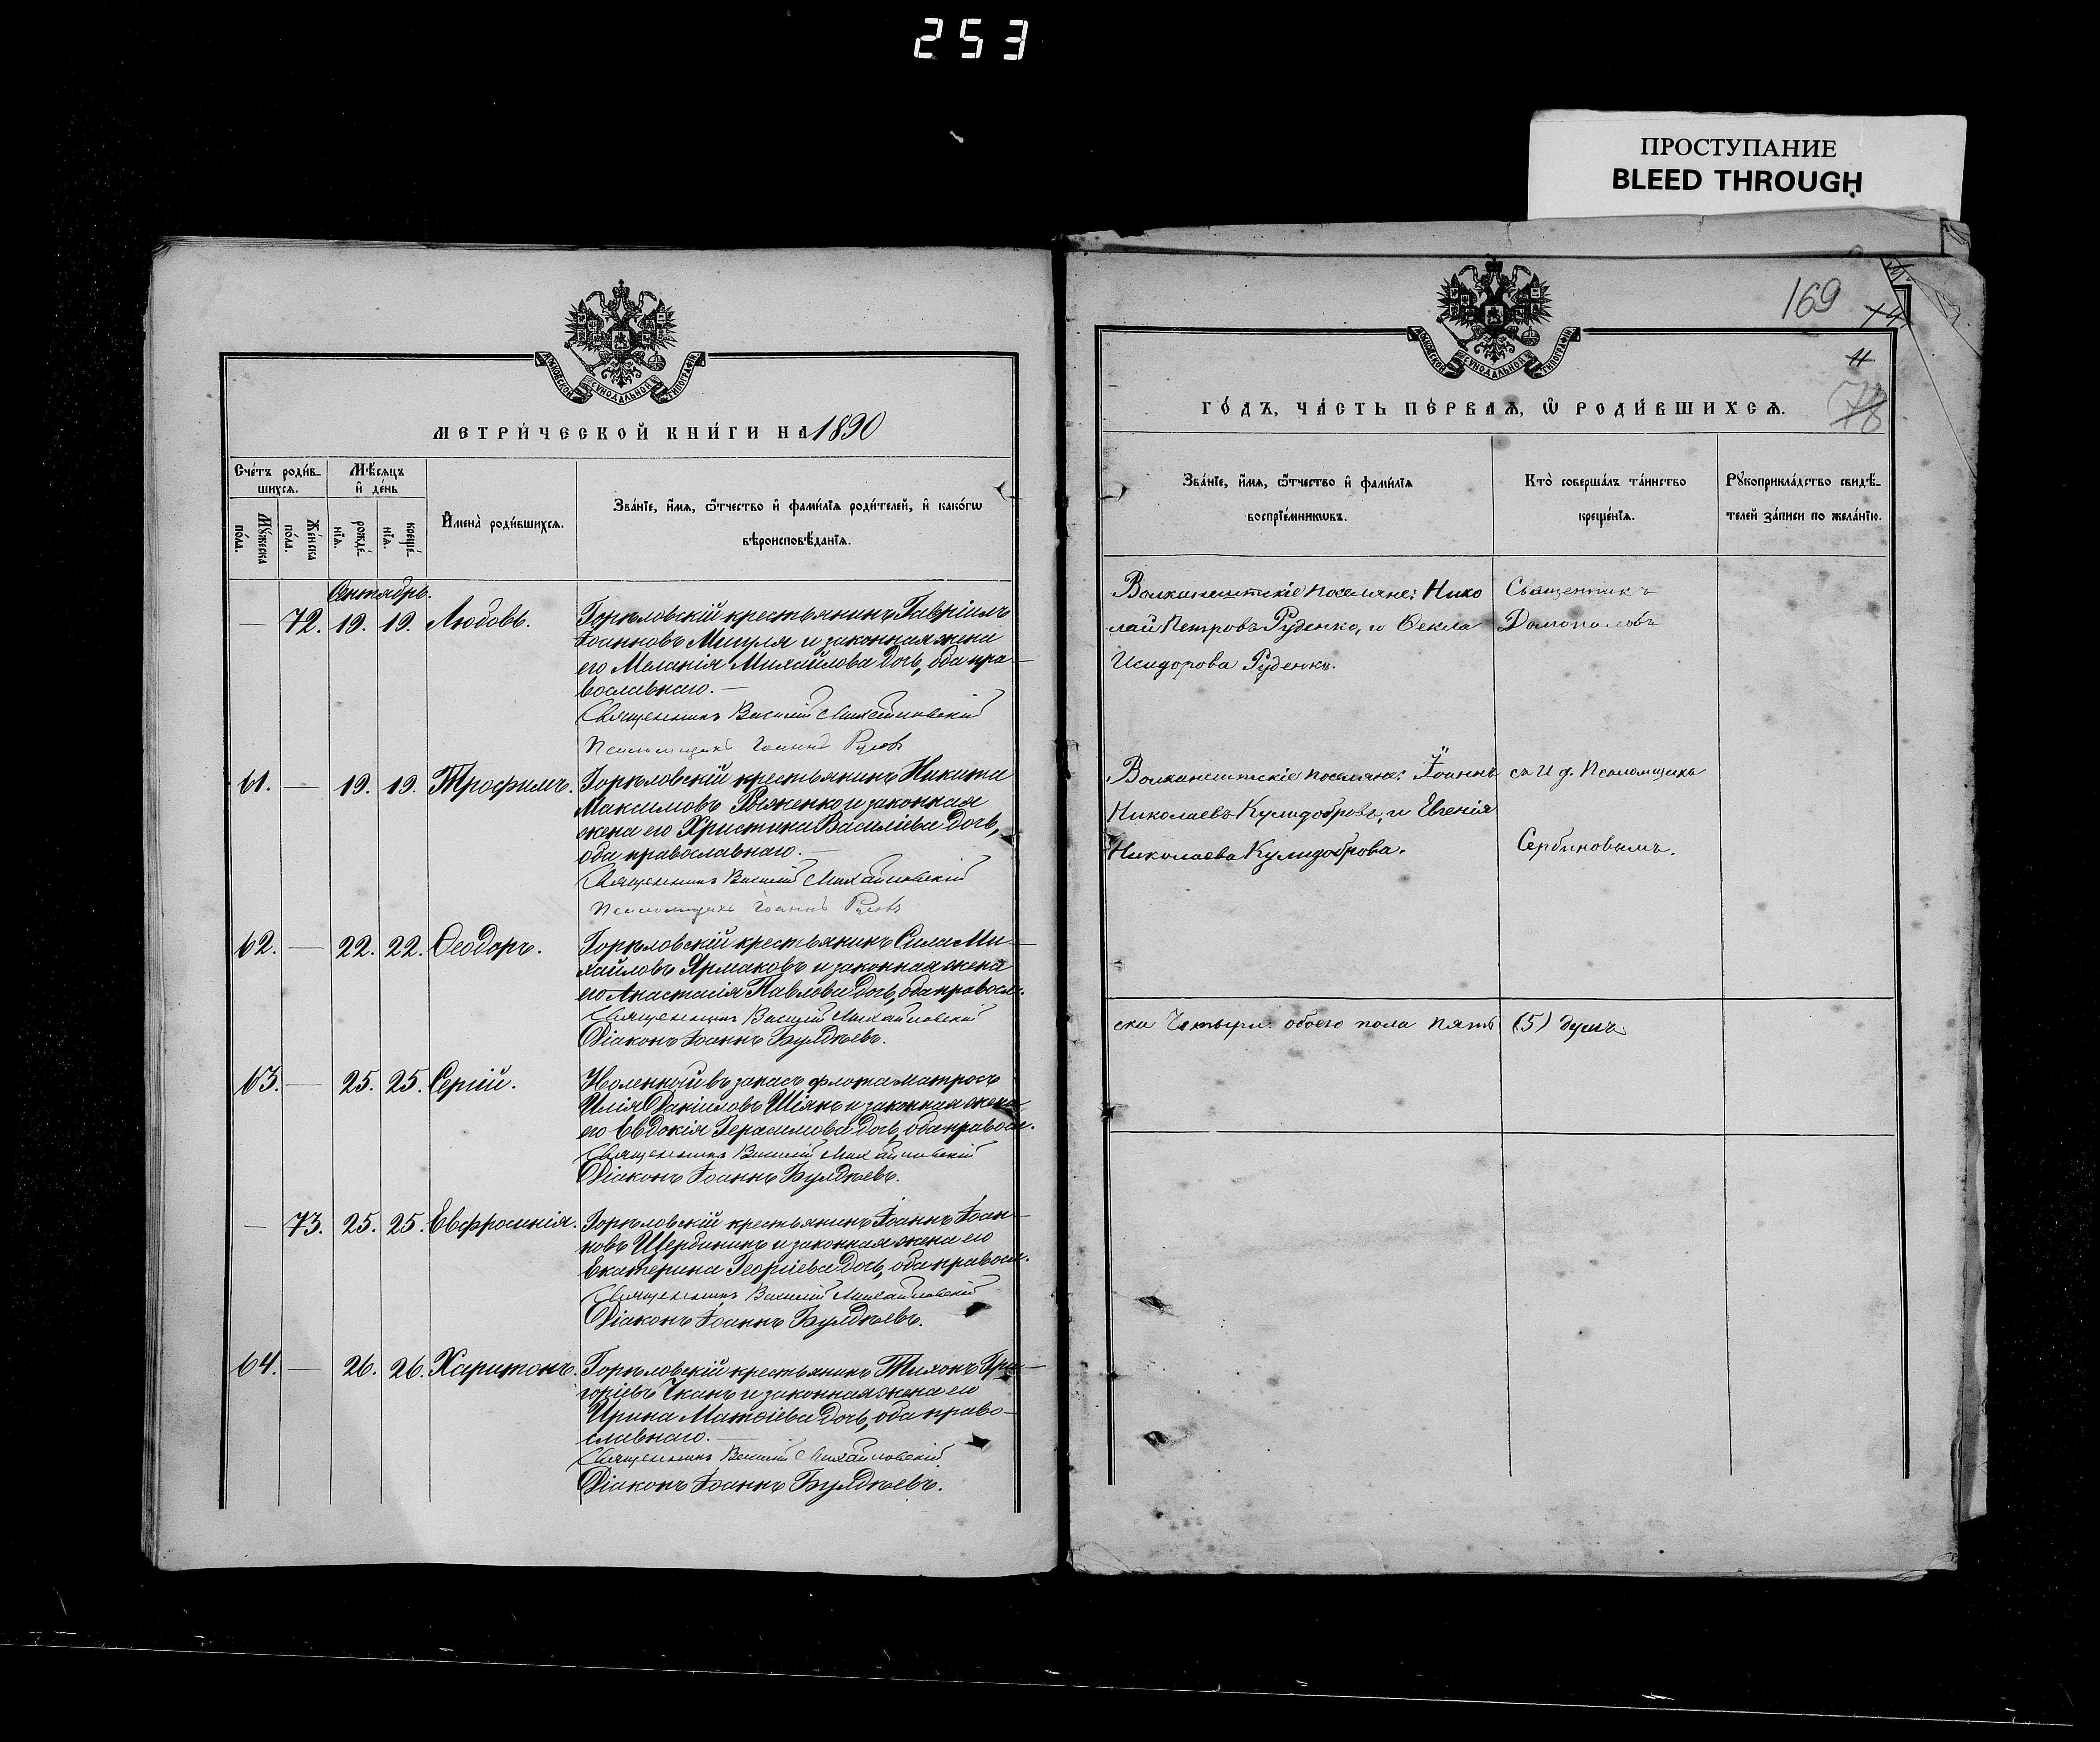 253
ПРОСТУПАНИЕ
BLEED THROUGH
МОСКОВСКОЙ СѴНОДАЛЬНОЙ ТИПОГРАФІИ
МЕТРИ́ЧЕСКОЙ КНИ́ГИ НА 1890
Сче́тъ роди́в-
шихсѧ.
Мѣ́сѧцъ
и҆ де́нь
Мꙋ́жеска по́ла.
Же́нска по́ла.
рожде́-
нїѧ.
креще́-
нїѧ.
И҆мена̀ роди́вшихсѧ.
Зва́нїе, и҆́мѧ, ѻ҆́тчество и҆ фами́лїѧ роди́телей, и҆ како́гѡ
вѣроисповѣ́данїѧ.
Октябрь.
— 72. 19. 19. Любовь. Горѣловскій крестьянинъ Гавріилъ
Іоанновъ Мигуля и законная жена
его Меланія Михайлова дочь, оба пра-
вославнаго.—
Священникъ Василій Михайловскій
Псаломщикъ Іоаннъ
61. — 19. 19. Трофимъ. Горѣловскій крестьянинъ Никита
Максимовъ и законная
жена его Христина Василіева дочь,
оба православнаго.—
Священникъ Василій Михайловскій
Псаломщикъ Іоаннъ
62. — 22. 22. Ѳеодоръ. Горѣловскій крестьянинъ Сила Ми-
хайловъ Ярмаковъ и законная жена
его Анастасія Павлова дочь, оба правосл.
Священникъ Василій Михайловскій
Діаконъ Іоаннъ Булдѣевъ.
63. — 25. 25. Сергій. Уволенный въ запасъ флота матросъ
Илія Даніиловъ Шіянъ и законная жена
его Евдокія Герасимова дочь, оба правосл.
Священникъ Василій Михайловскій
Діаконъ Іоаннъ Булдѣевъ.
— 73. 25. 25. Евфросинія. Горѣловскій крестьянинъ Іоаннъ Іоан-
новъ Щербининъ и законная жена его
Екатерина Георгіева дочь, оба правосл.
Священникъ Василій Михайловскій
Діаконъ Іоаннъ Булдѣевъ.
64. — 26. 26. Харитонъ. Горѣловскій крестьянинъ Тихонъ Гри-
горіевъ Ткачъ и законная жена его
Ирина Матѳіева дочь, оба право-
славнаго.—
Священникъ Василій Михайловскій
Діаконъ Іоаннъ Булдѣевъ.
169
78
МОСКОВСКОЙ СѴНОДАЛЬНОЙ ТИПОГРАФІИ
ГО́ДЪ, ЧА́СТЬ ПЕ́РВАѦ, Ѽ РОДИ́ВШИХСѦ.
Зва́нїе, и҆́мѧ, ѻ҆́тчество и҆ фами́лїѧ
воспрїе́мникѡвъ.
Кто̀ соверша́лъ та́инство
креще́нїѧ.
Рꙋкоприкла́дство свидѣ́-
телей за́писи по жела́нїю.
Волканештскіе поселяне: Нико
лай Петровъ Руденко, и Ѳекла
Исидорова Руденко.
Священникъ
Домополовъ
Волканештскіе поселяне: Іоаннъ
Николаевъ Кулидобровъ, и Евгенія
Николаева Кулидоброва.
съ И. д. Псаломщика
Сербиновымъ.
ска Четыре. обоего пола пять (5) душъ